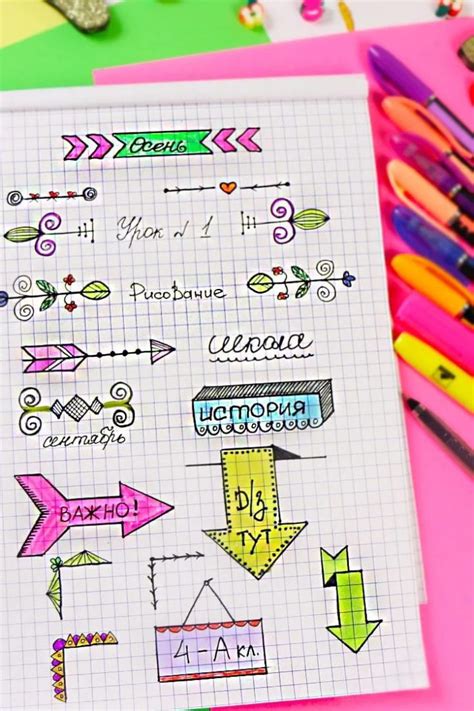 Осень
Урок № 1
Рисование
школа
ИСТОРИЯ
сентябрь
ВАЖНО!
Д/з
ТУТ
4-А кл.